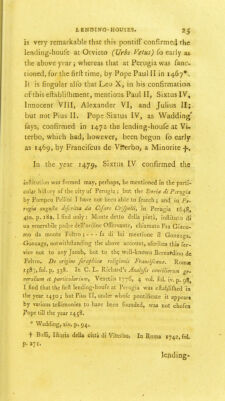 LENDING-HOUSES. 25
is very remarkable that this pontiff confirmed the
lending-house at Orvieto (Urbs Vetus) so early as
the above year; whereas that at Perugia was sanc-
tioned, for the first time, by Pope Paul II in 1467*.
It is singular also that Leo X, in his confirmation
of this establishment, mentions Paul II, Sixtus IV,
Innocent VIII, Alexander VI, and Julius II;
but not Pius II. Pope Sixtus IV, as Wadding
says, confirmed in 1472 the lending-house at Vi-
terbo, which had, however, been begun so early
as 1469, by Franciscus de Viterbo, a Minorite †.
In the year 1479, Sixtus IV confirmed the
institution was formed may, perhaps, be mentioned in the parti-
cular history of the city of Perugia; but the Storia di Perugia
by Pompeo Pellini I have not been able to search; and in Pe-
rugia augusta descritta da Cesare Crispolti, in Perugia 1648,
4to. p. 182. I find only: Monte detto della pietà, instituto di
un venerabile padre dell'ordine Osservante, chiamato Fra Giaco-
mo da monte Feltro; - - - fu di lui mentione il Gonzaga.
Gonzaga, notwithstanding the above account, ascribes this ser-
vice not to any Jacob, but to the well-known Bernardino de
Feltro. De origine seraphicæ religionis Franciscanæ. Romæ
1587, fol. p. 558. In C. L. Richard's Analysis conciliorum ge-
neralium et particularium, Venetiis 1776, 4 vol. fol. iv. p. 98,
I find that the first lending-house at Perugia was established in
the year 1450; but Pius II, under whose pontificate it appears
by various testimonies to have been founded, was not chosen
Pope till the year 1458.
* Wadding, xiv. p. 94.
† Bussi, Istoria della città di Viterbo. In Roma 1742, fol.
p. 271.
lending-